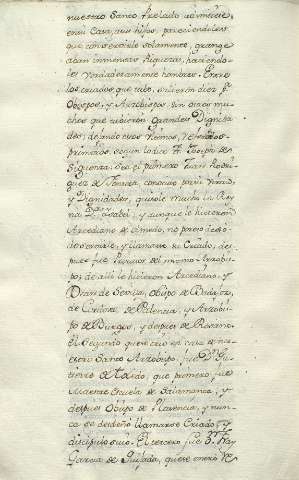 nuestro Santo Prelado admitiese
en su Casa, sus hijos, pareciendoles
que con servirle solamente, grange
aban inmensas riquezas, haciendo
les verdaderamente hombres. Entre
los criados que tubo, salieron diez p.
Obispos, y Arzobispos, sin otros mu
chos que tubieron grandes Dignida
des, de anco
primados, segun lo dice F. Joseph de
Siguenza: fue el primero Juan Rodri
guez de Fonseca, conocido por su
y Dignidades, quisole mucho la Rey
na D.ª Isabel, y aunque le hicieron
Arcediano de Olmedo, no por eso dexó
de servirle, y llamarse su Criado, des
pues fue del mismo Arzobis
po; de alli le hicieron Arcediano, y
Dean de Sevilla, Obispo de Badajoz,
de Cordova de Palencia, y Arzobis
po de Burgos, y despues de Rosano.
El Segundo que se crio en casa de nu
estro Santo Arzobispo, fue D. Gu
tierre de Toledo, que primero fue
Maestre Escuela de Salamanca, y
despues Obispo de Plasencia, y nun
ca se desdeñó llamarse Criado, y
discipulo suyo. El tercero fue D. Fray
Garcia de Quijada, que se crio de